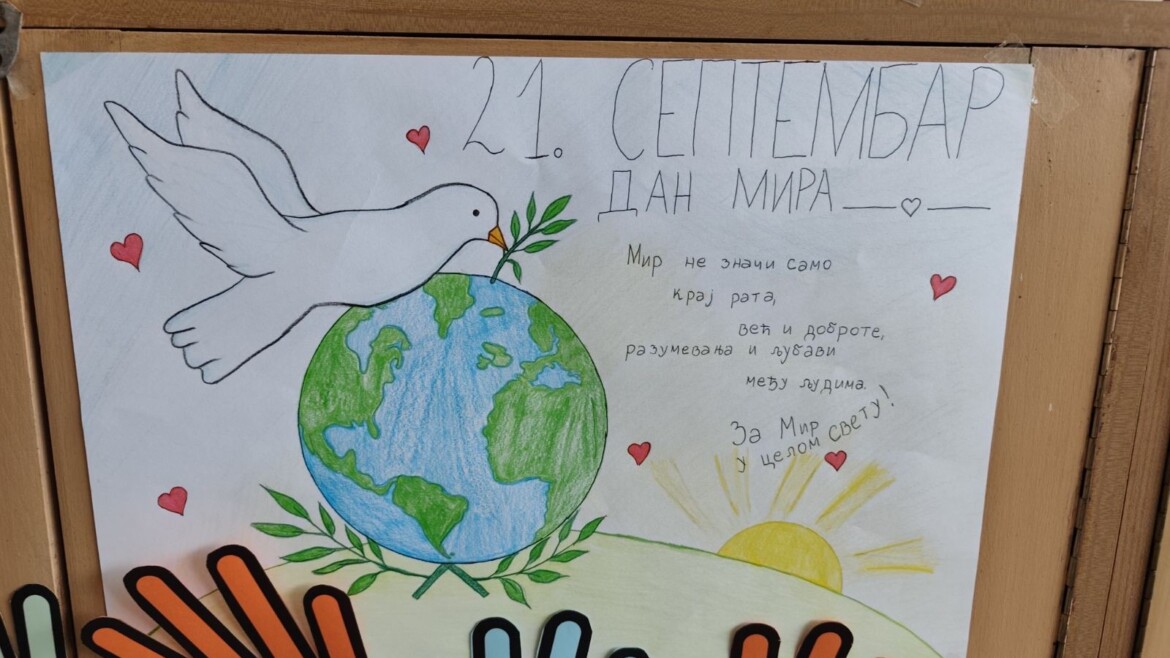 21. СЕПТЕМБАР
ДАН МИРА
Мир не значи само
крај рата,
већ и доброте,
разумевања и љубави
међу људима.
За Мир
у целом свету!